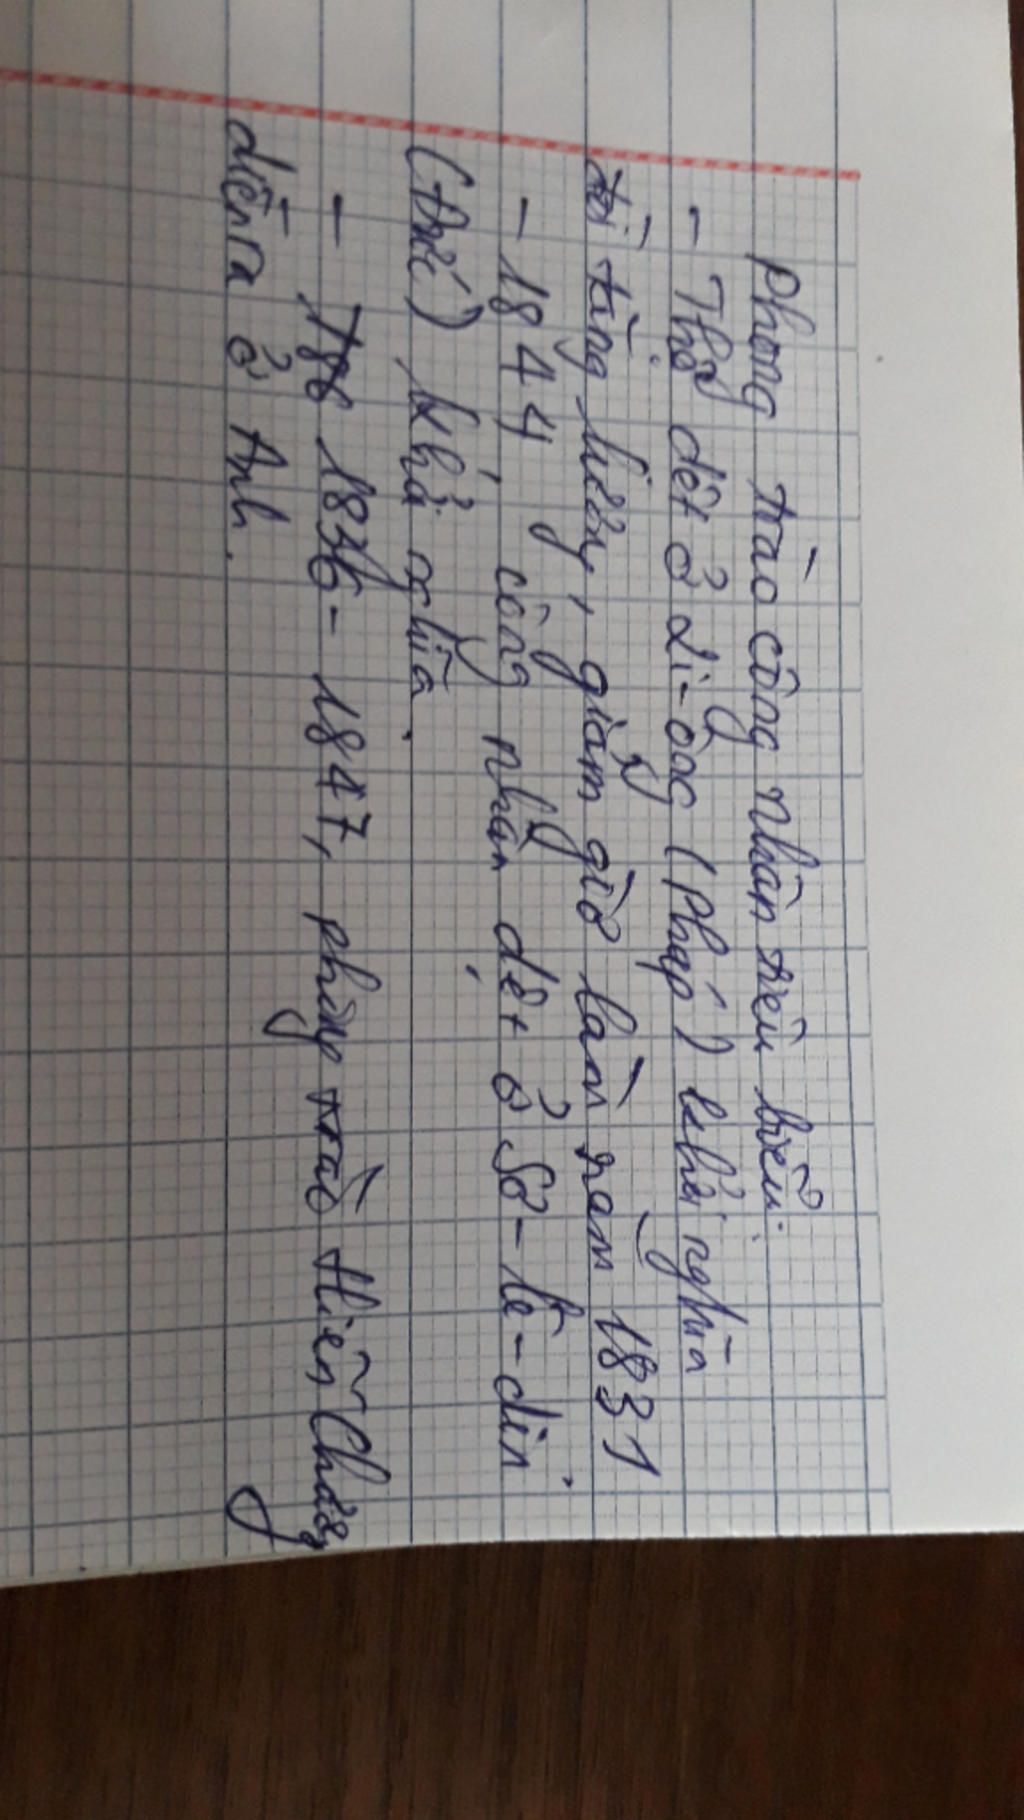 Phong trào công nhân tiêu biểu:
- Thợ dệt ở Li-ông (Pháp) khởi nghĩa
đòi tăng lương, giảm giờ làm năm 1831
- 1844, công nhân dệt ở Sơ-lê-din
(Đức) khởi nghĩa.
- 1836-1847, phong trào Hiến Chương
diễn ra ở Anh.